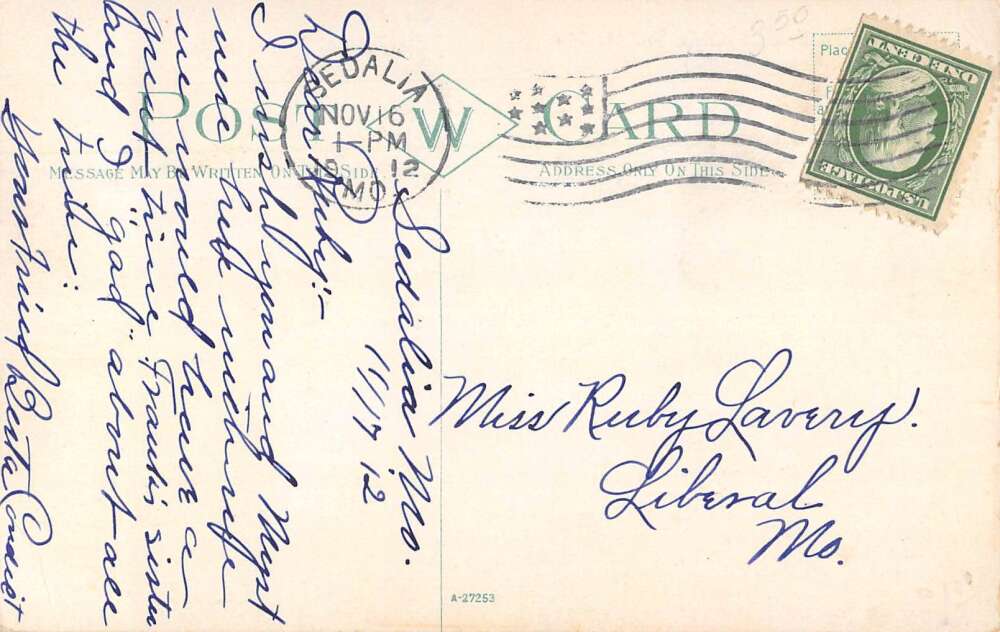 POST CARD
W
MESSAGE MAY BE WRITTEN ON THIS SIDE.
ADDRESS ONLY ON THIS SIDE.
Plac
SEDALIA
NOV 16
1-PM
1912
MO.
ONE CENT
U.S. POSTAGE
3 50
Sedalia Mo.
11/17 12
Dear Ruby:-
I wish you and Myrt
were here with me
we would have a
great time Frank's sister
and I "gad" about all
the time.
Your friend Berta Condict
Miss Ruby Lavery.
Liberal
Mo.
A-27253